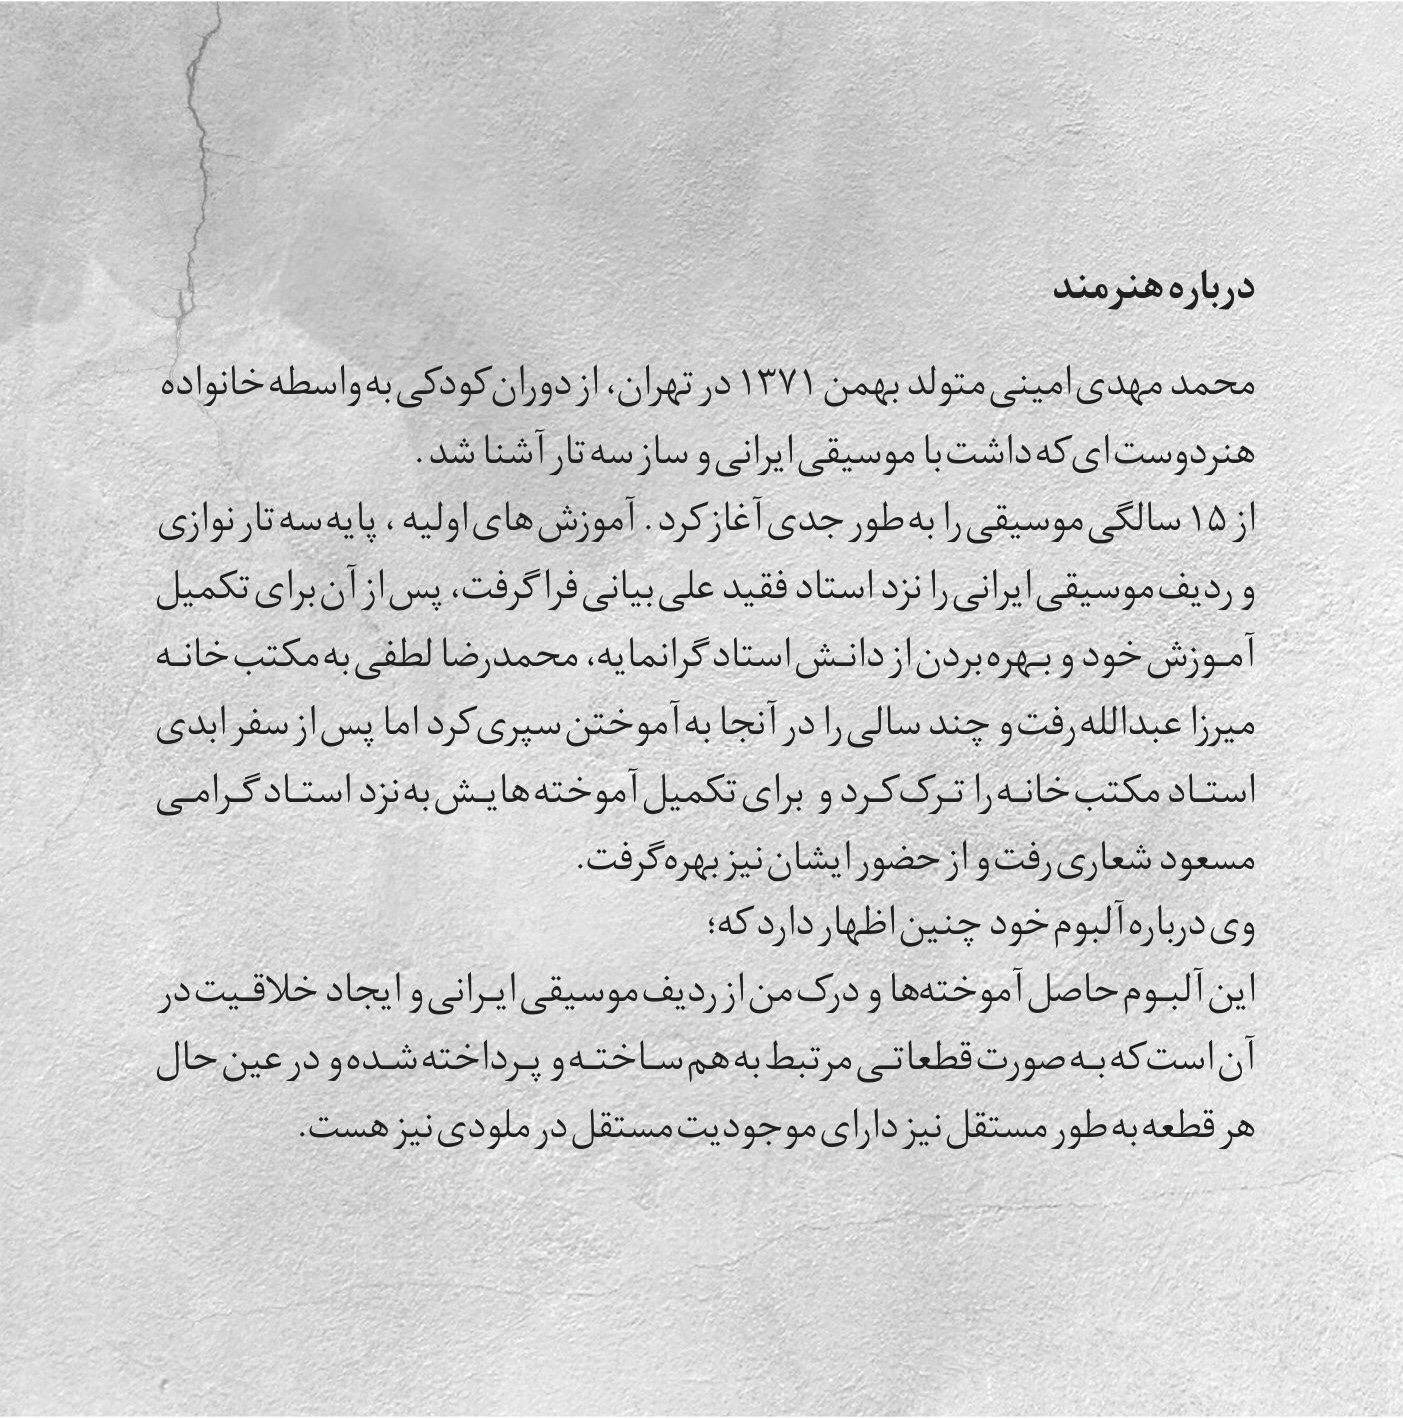 درباره هنرمند
محمد مهدی امینی متولد بهمن ۱۳۷۱ در تهران، از دوران کودکی به واسطه خانواده
هنردوست ای که داشت با موسیقی ایرانی و ساز سه تار آشنا شد .
از ۱۵ سالگی موسیقی را به طور جدی آغاز کرد . آموزش های اولیه ، پایه سه تار نوازی
و ردیف موسیقی ایرانی را نزد استاد فقید علی بیانی فرا گرفت، پس از آن برای تکمیل
آموزش خود و بهره بردن از دانش استاد گرانمایه، محمدرضا لطفی به مکتب خانه
میرزا عبدالله رفت و چند سالی را در آنجا به آموختن سپری کرد اما پس از سفر ابدی
استاد مکتب خانه را ترک کرد و برای تکمیل آموخته هایش به نزد استاد گرامی
مسعود شعاری رفت و از حضور ایشان نیز بهره گرفت.
وی درباره آلبوم خود چنین اظهار دارد که؛
این آلبوم حاصل آموخته‌ها و درک من از ردیف موسیقی ایرانی و ایجاد خلاقیت در
آن است که به صورت قطعاتی مرتبط به هم ساخته و پرداخته شده و در عین حال
هر قطعه به طور مستقل نیز دارای موجودیت مستقل در ملودی نیز هست.